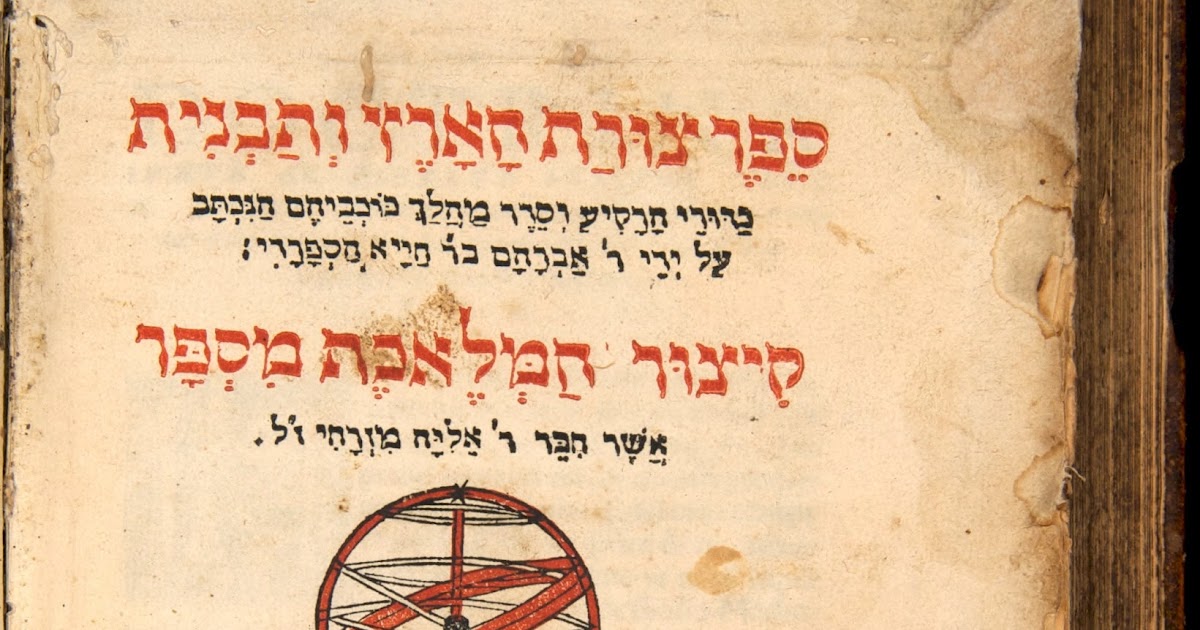 סֵפֶר צוּרַת הָאָרֶץ וְתַבְנִית
כַּדּוּרֵי הָרָקִיעַ וְסֵדֶר מַהֲלַךְ כּוֹכְבֵיהֶם הַנִּכְתָּב
עַל יְדֵי ר' אַבְרָהָם בר חַיָּיא הַסְפָרָדִי׃
קִיצוּר הַמְּלֶאכֶת מִסְפָּר
אֲשֶׁר חִבֵּר ר' אֵלִיָּה מִזְרָחִי ז'ל.